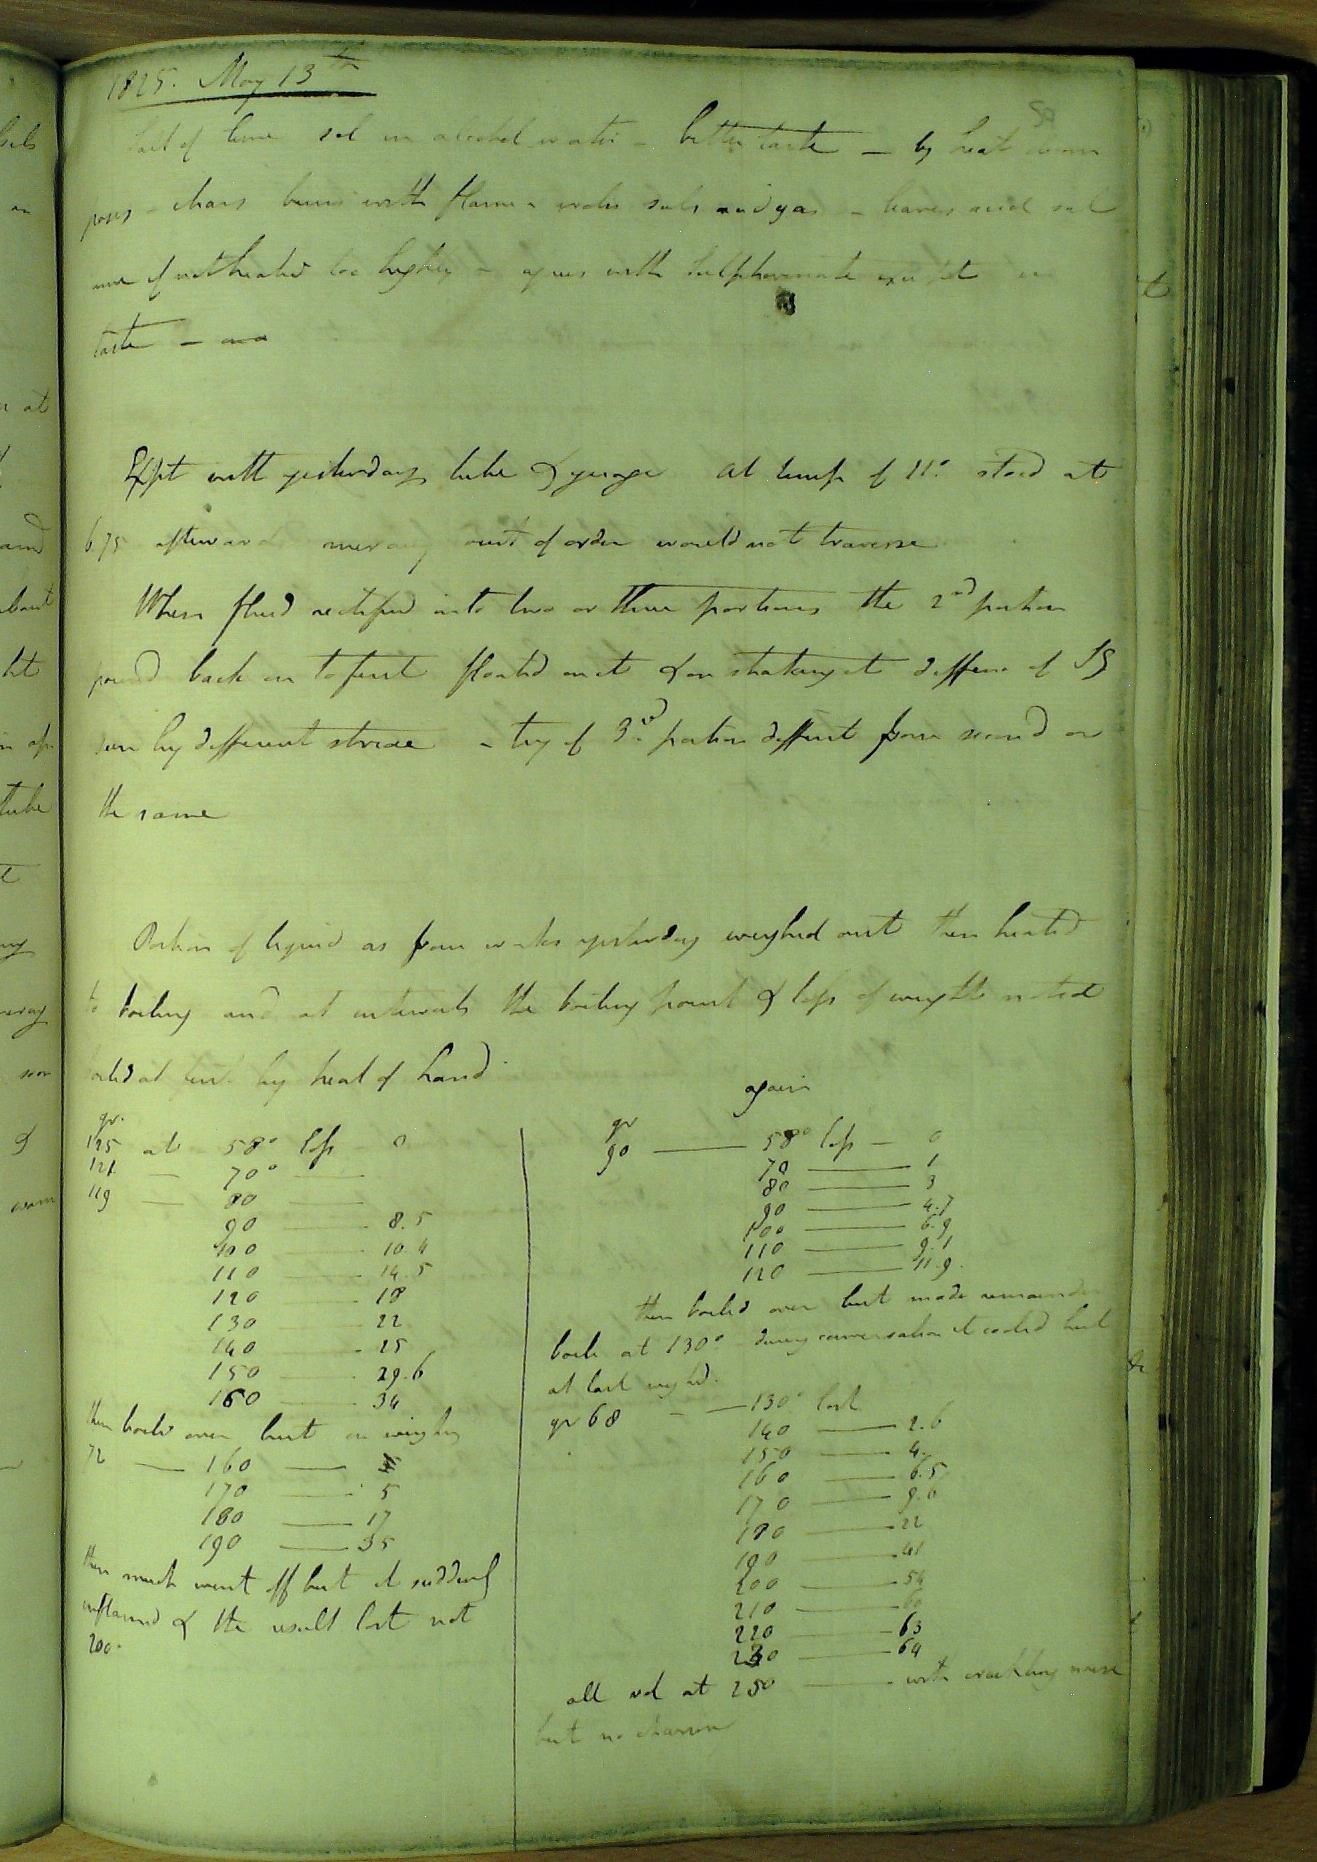 1825. May 13th
58
Salt of lime sol in alcohol water - bitter taste - by heat decom
poses - chars burns with flame & yields sulp acid gas - leaves acid sul
if not heated too highly - agrees with Sulphovinate except in
taste - and
Expt with yesterdays tube & gauge At temp of 11° stood at
6.75 afterwards mercury out of order would not traverse
When fluid rectified into two or three portions the 2nd portion
poured back on to first floated on it & on shaking it difference of SG
seen by different striae - try if 3rd portion different from second or
the same
Portion of liquid as from works yesterday weighed out then heated
to boiling and at intervals the boiling point & loss of weight noted
boiled at first by heat of hand
again
gr.
125 at 58° loss 0
121 — 70° —
119 — 80 —
90 — 8.5
100 — 10.4
110 — 14.5
120 — 18
130 — 22
140 — 25
150 — 29.6
160 — 34
then boiled over but on weighing
72 — 160 —
170 — 5
180 — 17
190 — 35
then much went off but it suddenly
inflamed & the result lost not
200.
gr
90 — 58° loss — 0
70 — 1
80 — 3
90 — 4.7
100 — 6.9
110 — 9.1
120 — 11.9
then boiled over but made remainder
boil at 130° during conversation it cooled but
at last weighd.
gr 68 — 130° lost
140 — 2.6
150 — 4.
160 — 6.5
170 — 9.6
180 — 22
190 — 41
200 — 54
210 — 60
220 — 63
230 — 64
all vol at 250 — with crackling noise
but no charring